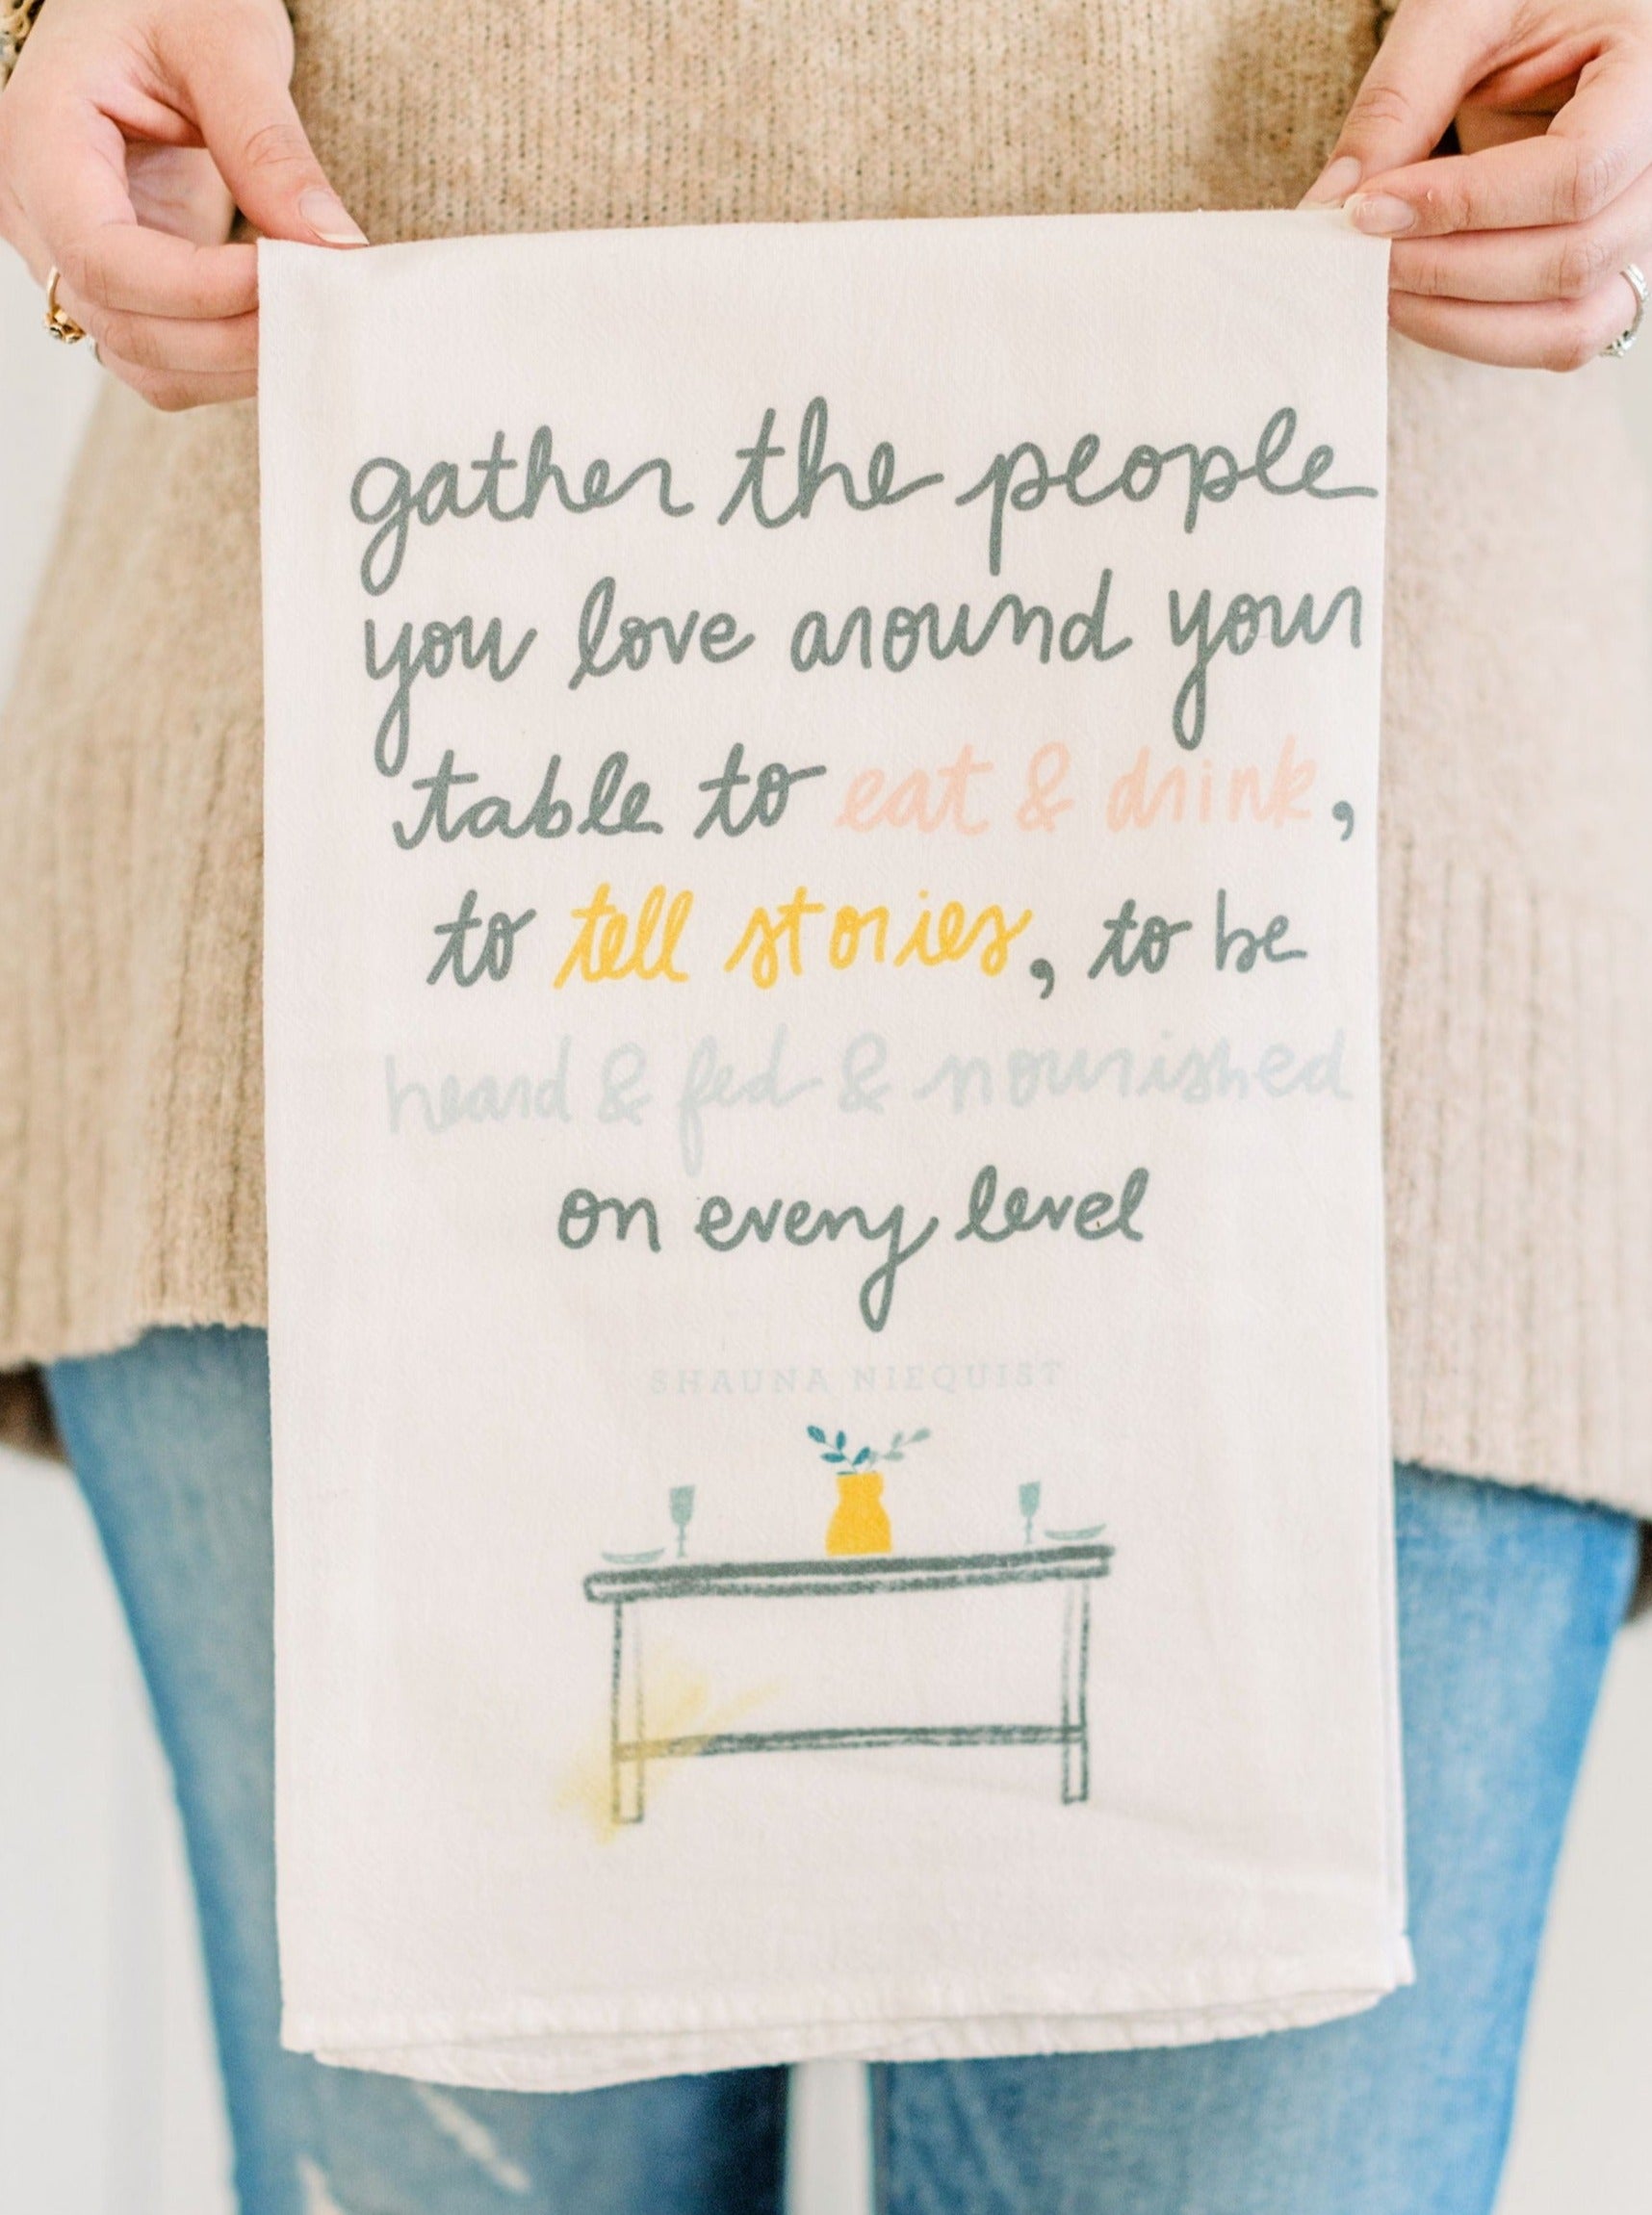 gather the people
you love around your
table to eat & drink,
to tell stories, to be
heard & fed & nourished
on every level
SHAUNA NIEQUIST